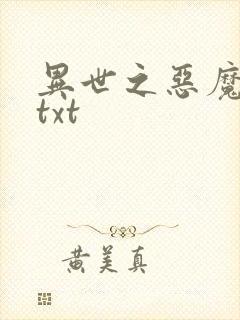 異世之惡魔
txt
黄美真